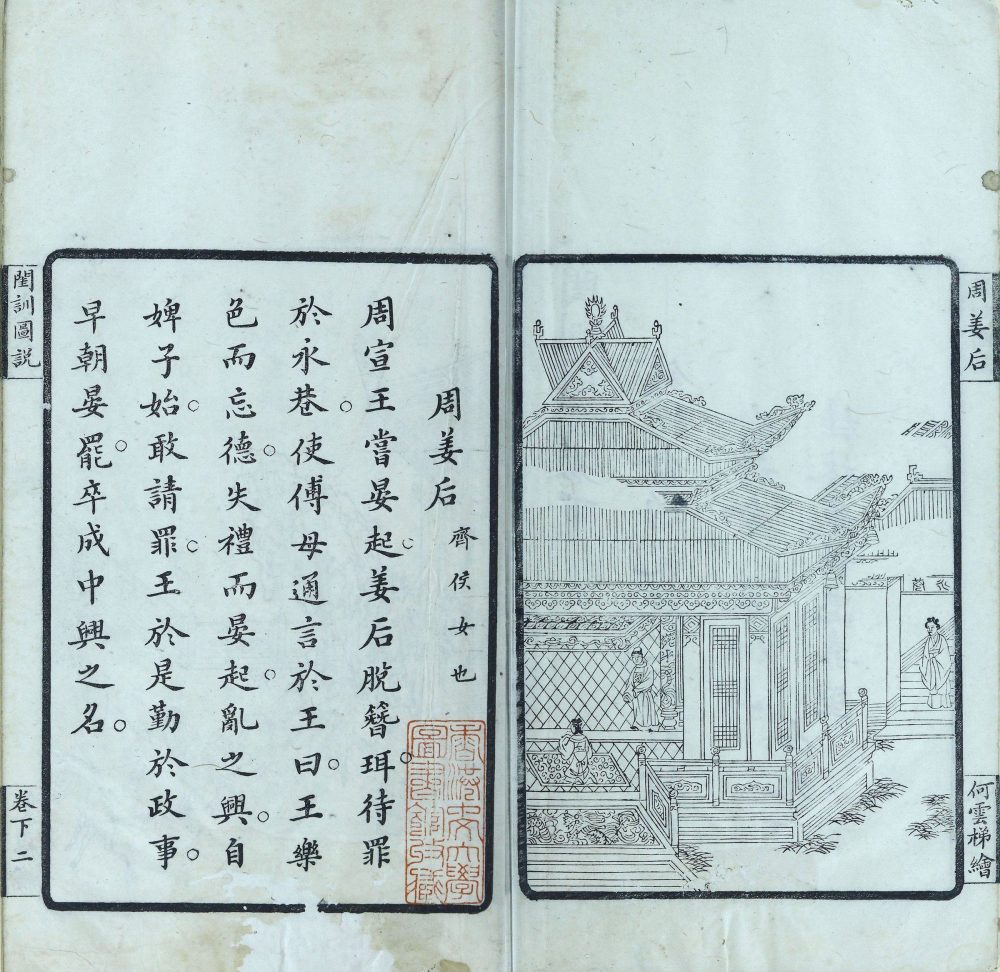 周姜后
何雲梯繪
永巷
周姜后 齊侯女也
周宣王嘗晏起。姜后脫簪珥。待罪
於永巷。使傅母通言於王曰。王樂
色而忘德。失禮而晏起。亂之興。自
婢子始。敢請罪。王於是勤於政事。
早朝晏罷。卒成中興之名。
香港中文大學
圖書館
閨訓圖説
卷下 二